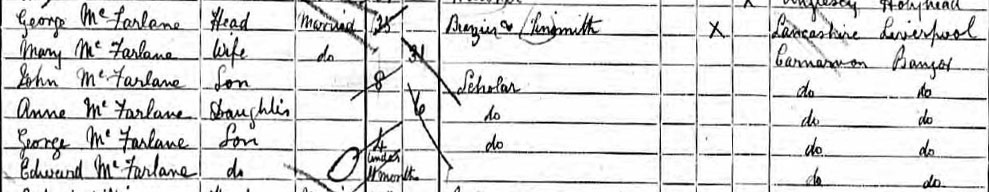 George Mc Farlane Head Married 35 Brazier & Tinsmith X Lancashire Liverpool
Mary Mc Farlane Wife do 31 Carnarvon Bangor
John Mc Farlane Son 8 Scholar do do
Anne Mc Farlane Daughter 6 do do do
George Mc Farlane Son 4 do do do
Edward Mc Farlane do under month do do